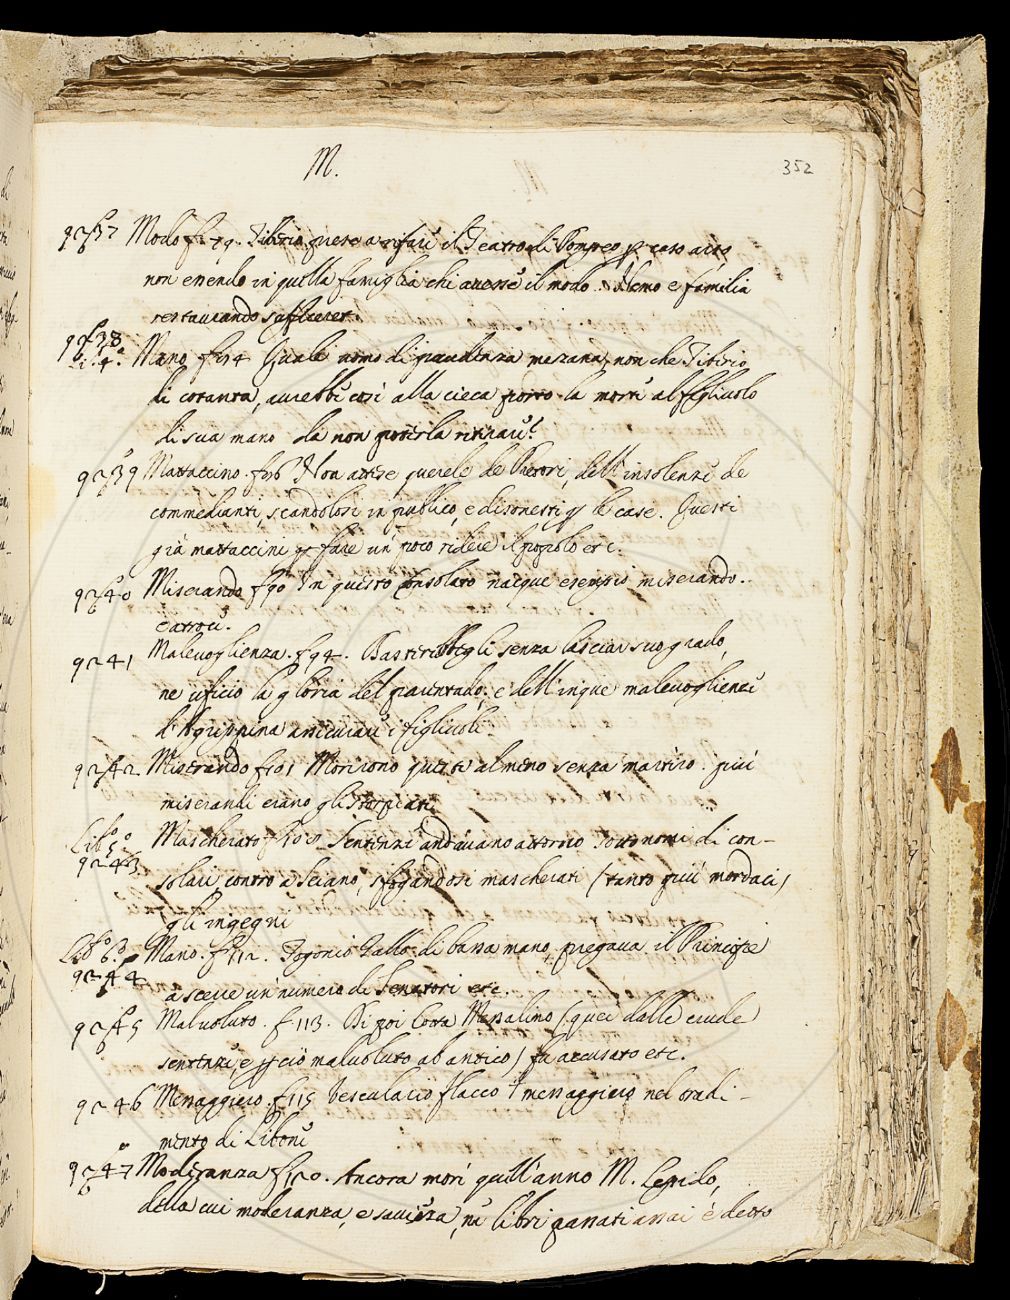 M.
352
9237 Modo f. 79. Tiberio prese a rifare il Teatro di Pompeo p caso arso
non essendo in quella famiglia chi avesse il modo. Nemo e familia
restaurando sufficeret.
9238 Mano f. 84 Quale uomo di prudenza mezana, non che Tiberio
Li. 4.o
di cotanta, avrebbe così alla cieca porto la morte al figliuolo
di sua mano da non poterla ritirare?
9239 Mattaccino. f. 86 Non attese querele de Pretori, dell'insolenze de
commedianti, scandolosi in publico, e disonesti p le case. Questi
già mattaccini p fare un poco ridere il popolo etc.
9240 Miserando f. 90 In questo consolato nacque esempio miserando.
e atroce.
9241 Malevoglienza. f. 94. Bastiribbegli senza lasciar suo grado,
ne uficio la gloria del parentado; e dell'inque malevoglienze
d'Agrippina assicurare i figliuoli
9242 Miserando f. 101 Morirono questi almeno senza martiro. più
miserandi erano gli storpiati.
Lib.o 5.o
9243 Mascherato f. Sentenze andavano attorno sotto nomi di con-
solari contro a Sciano, sfogandosi mascherati (tanto più mordaci)
gli ingegni
Lib.o 6.o
9244 Mano. f. 112. Togonio Gallo di bassa mano, pregava il Principe
a scerre un numero di Senatori etc.
9245 Malvoluto. f. 113. Di poi Cotta Messalino (quei dalle crude
sentenze e p ciò malvoluto ab antico) fu accusato etc.
9246 Messaggiero f. 115 Vesculario Flacco il messaggiero nel tradi-
mento di Libone
9247 Moderanza f. 120. Ancora morì quell'anno M. Lepido,
della cui moderanza, e saviezza, ne libri passati assai è detto